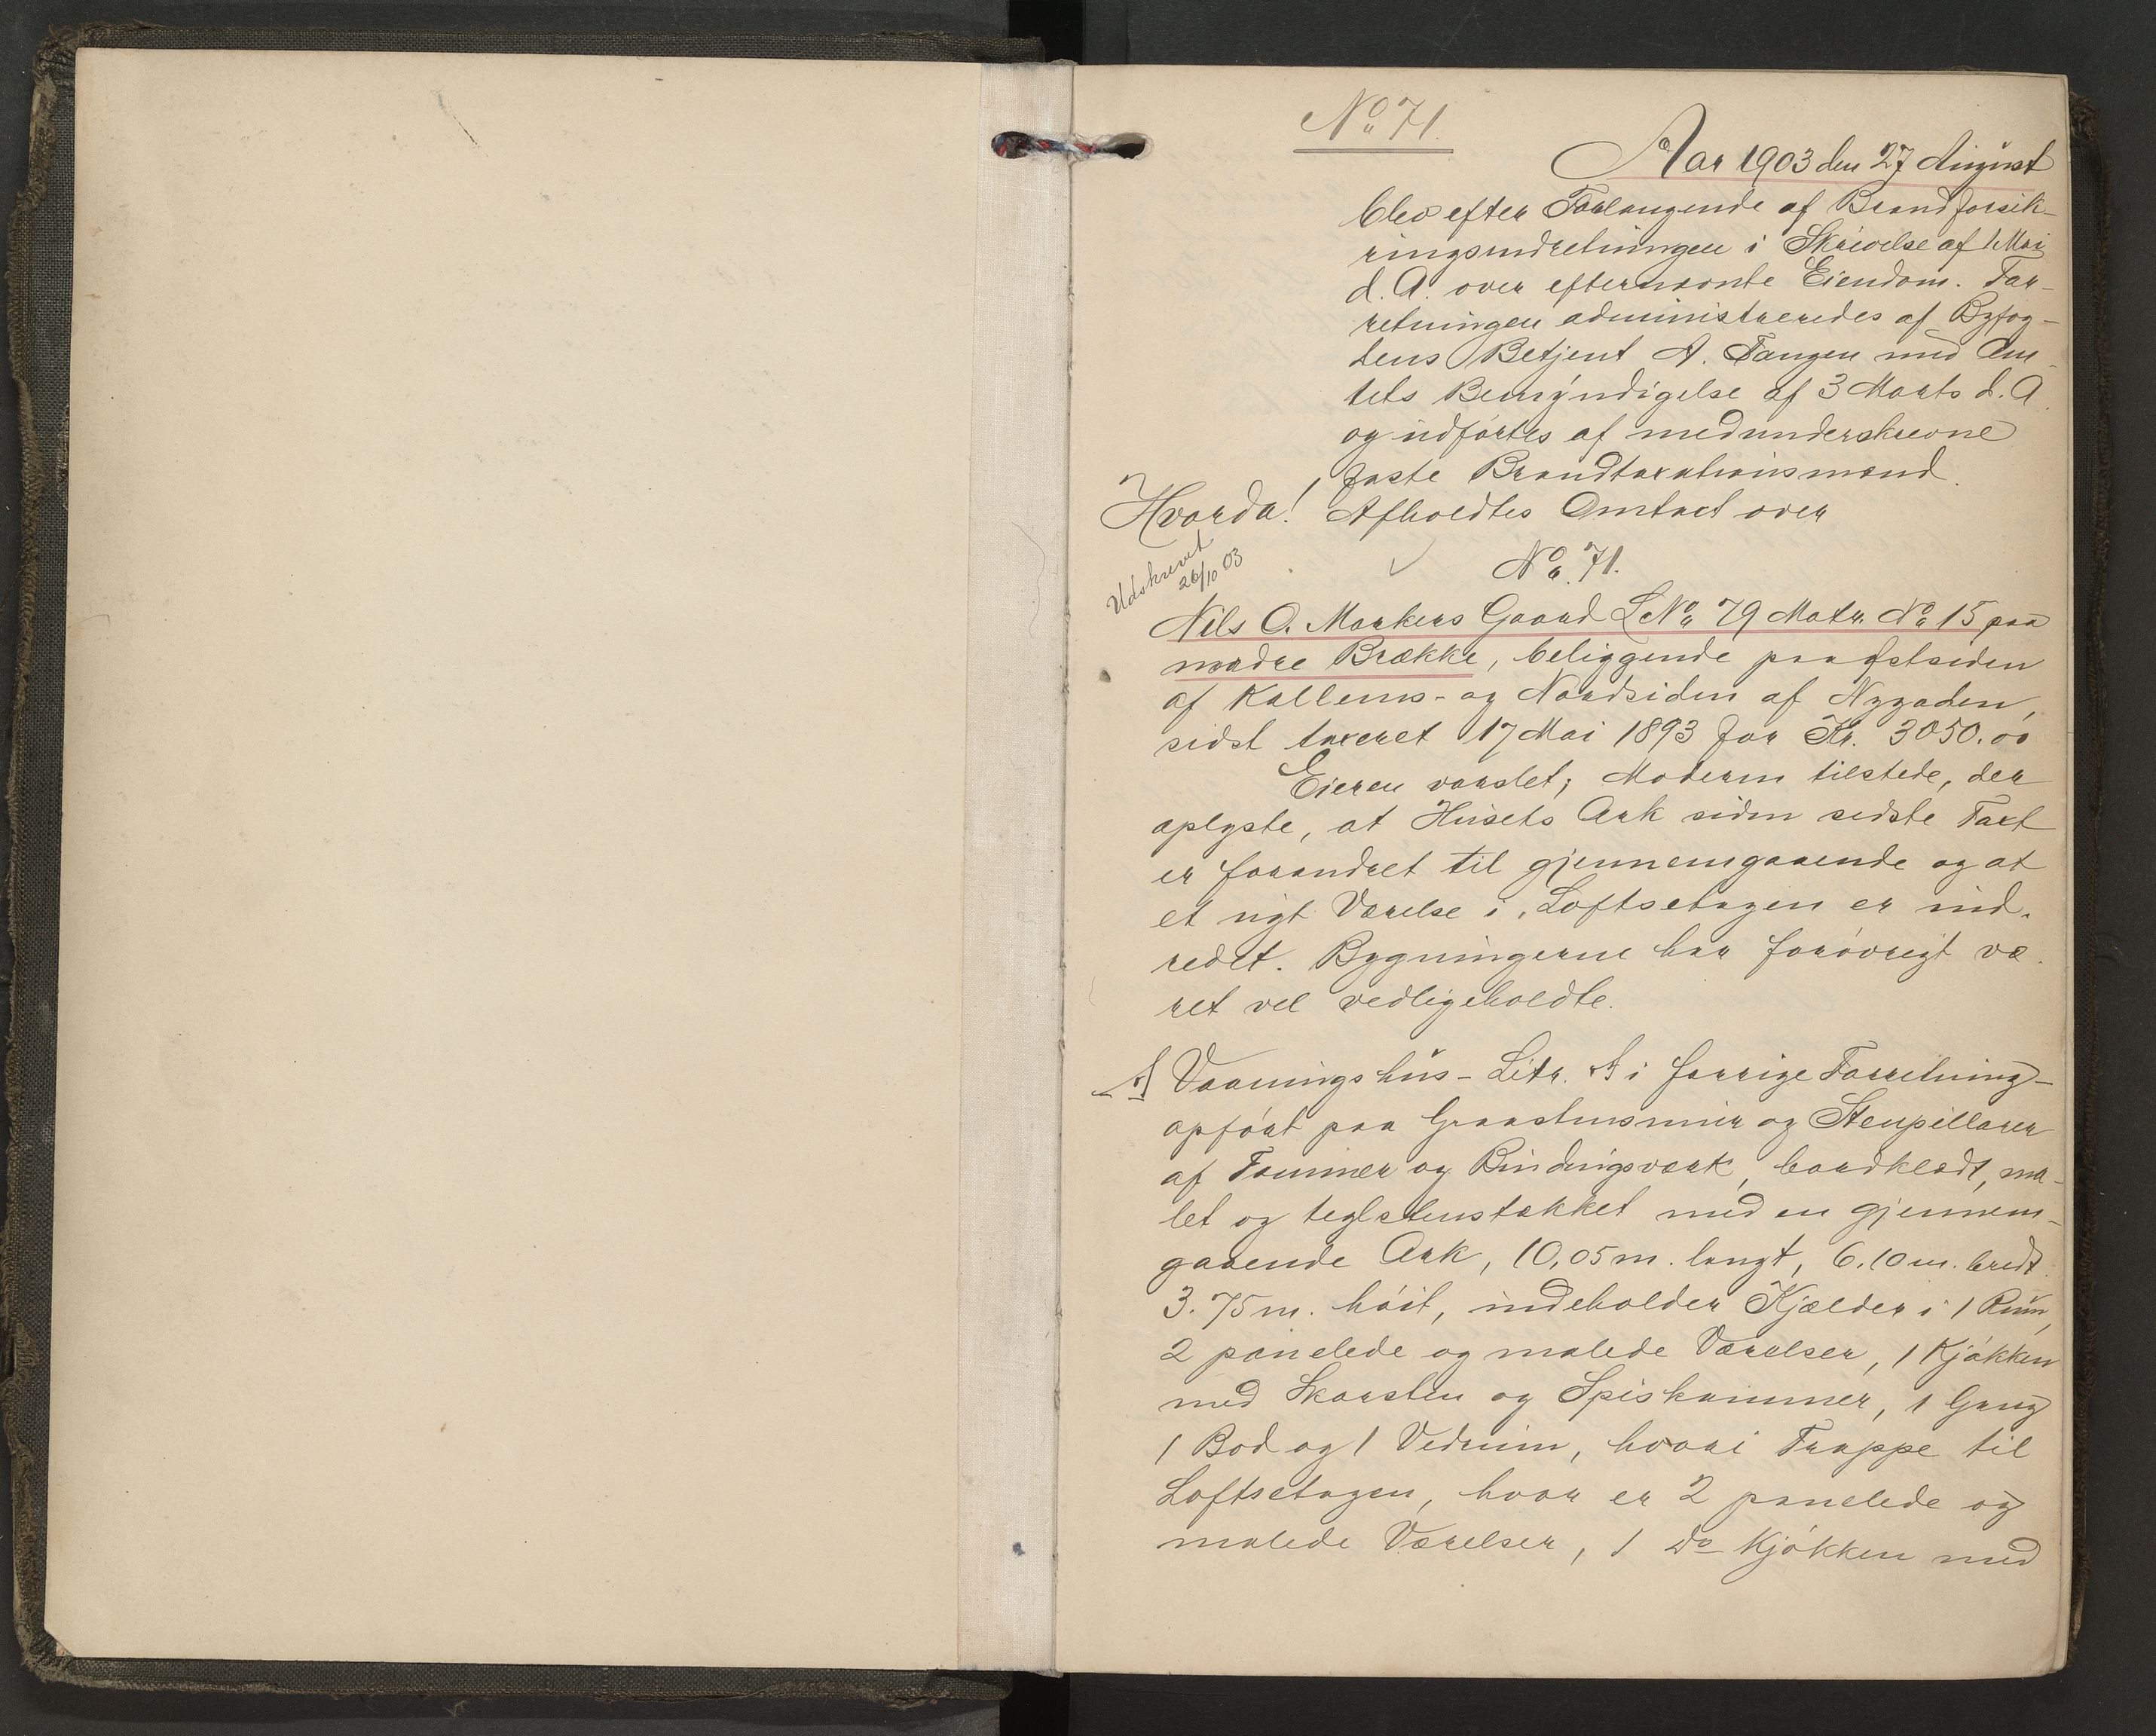 No 71.
Aar 1903 den 27 August
blev efter Forlangende af Brandforsik-
ringsindretningen i Skrivelse af 1 Mai
d. A. over efternævnte Eiendom. For-
retningen administreredes af Byfog-
dens Betjent A. Tangen med Am-
tets Bemyndigelse af 3 Marts d. A.
og udførtes af medunderskrevne
faste Brandtaxationsmænd.
Hvorda! Afholdtes Omtaxt over
Udskrevet
26/10 03
No. 71.
Nils O. Morkers Gaard L No 79 Matr. No 15 paa
nordre Brække, beliggende paa Østsiden
af Kallems- og Nordsiden af Nygaden,
sidst taxeret 17 Mai 1893 for Kr. 3050.00
Eieren varslet; Moderen tilstede, der
oplyste, at Husets Ark siden sidste Taxt
er forandret til gjennemgaaende og at
et nyt Værelse i Loftsetagen er ind-
redet. Bygningerne har forøvrigt væ-
ret vel vedligeholdte.
A Vaaningshus - Litr. A i forrige Forretning -
opført paa Graastensmur og Stenpillarer
af Tømmer og Bindingsværk, bordklædt, ma-
let og teglstenstækket med en gjennem-
gaaende Ark, 10,05 m. langt, 6.10 m. bredt
3.75 m. høit, indeholder Kjælder i 1 Rum,
2 panelede og malede Værelser, 1 Kjøkken
med Skorsten og Spiskammer, 1 Gang
1 Bod og 1 Vedrum, hvori Trappe til
Loftsetagen, hvor er 2 panelede og
malede Værelser, 1 do Kjøkken med